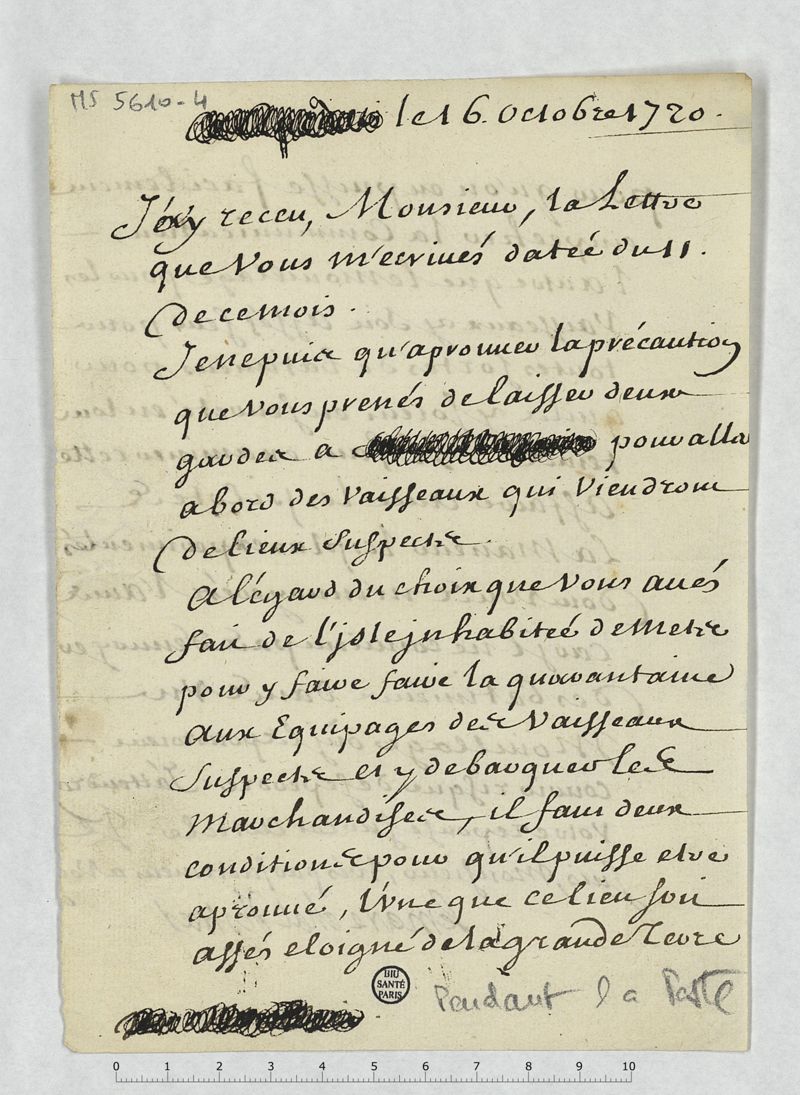 MS 5610-4
le 16. Octobre 1720.
J'ay receu, Monsieur, la Lettre
que Vous m'ecrivés datée du 11.
de ce mois.
Je ne puis qu'aprouver la précaution
que vous prenés de laisser deux
gardes a pour alla
abord des Vaisseaux qui Viendront
de lieux suspects.
A l'égard du choix que Vous avés
fait de l'jsle jnhabiteé de Mets
pour y faire faire la quarantaine
aux Equipages des Vaisseaux
suspects et y debarquer les
Marchandises, il faut deux
conditions pour qu'il puisse etre
aprouvé, L'Vne que ce lieu soit
assés eloigné de la grande Terre
BIU
SANTÉ
PARIS
Pendant la Peste
0 1 2 3 4 5 6 7 8 9 10